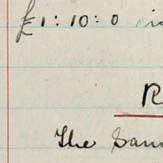 £1:10:0
R
The Sam